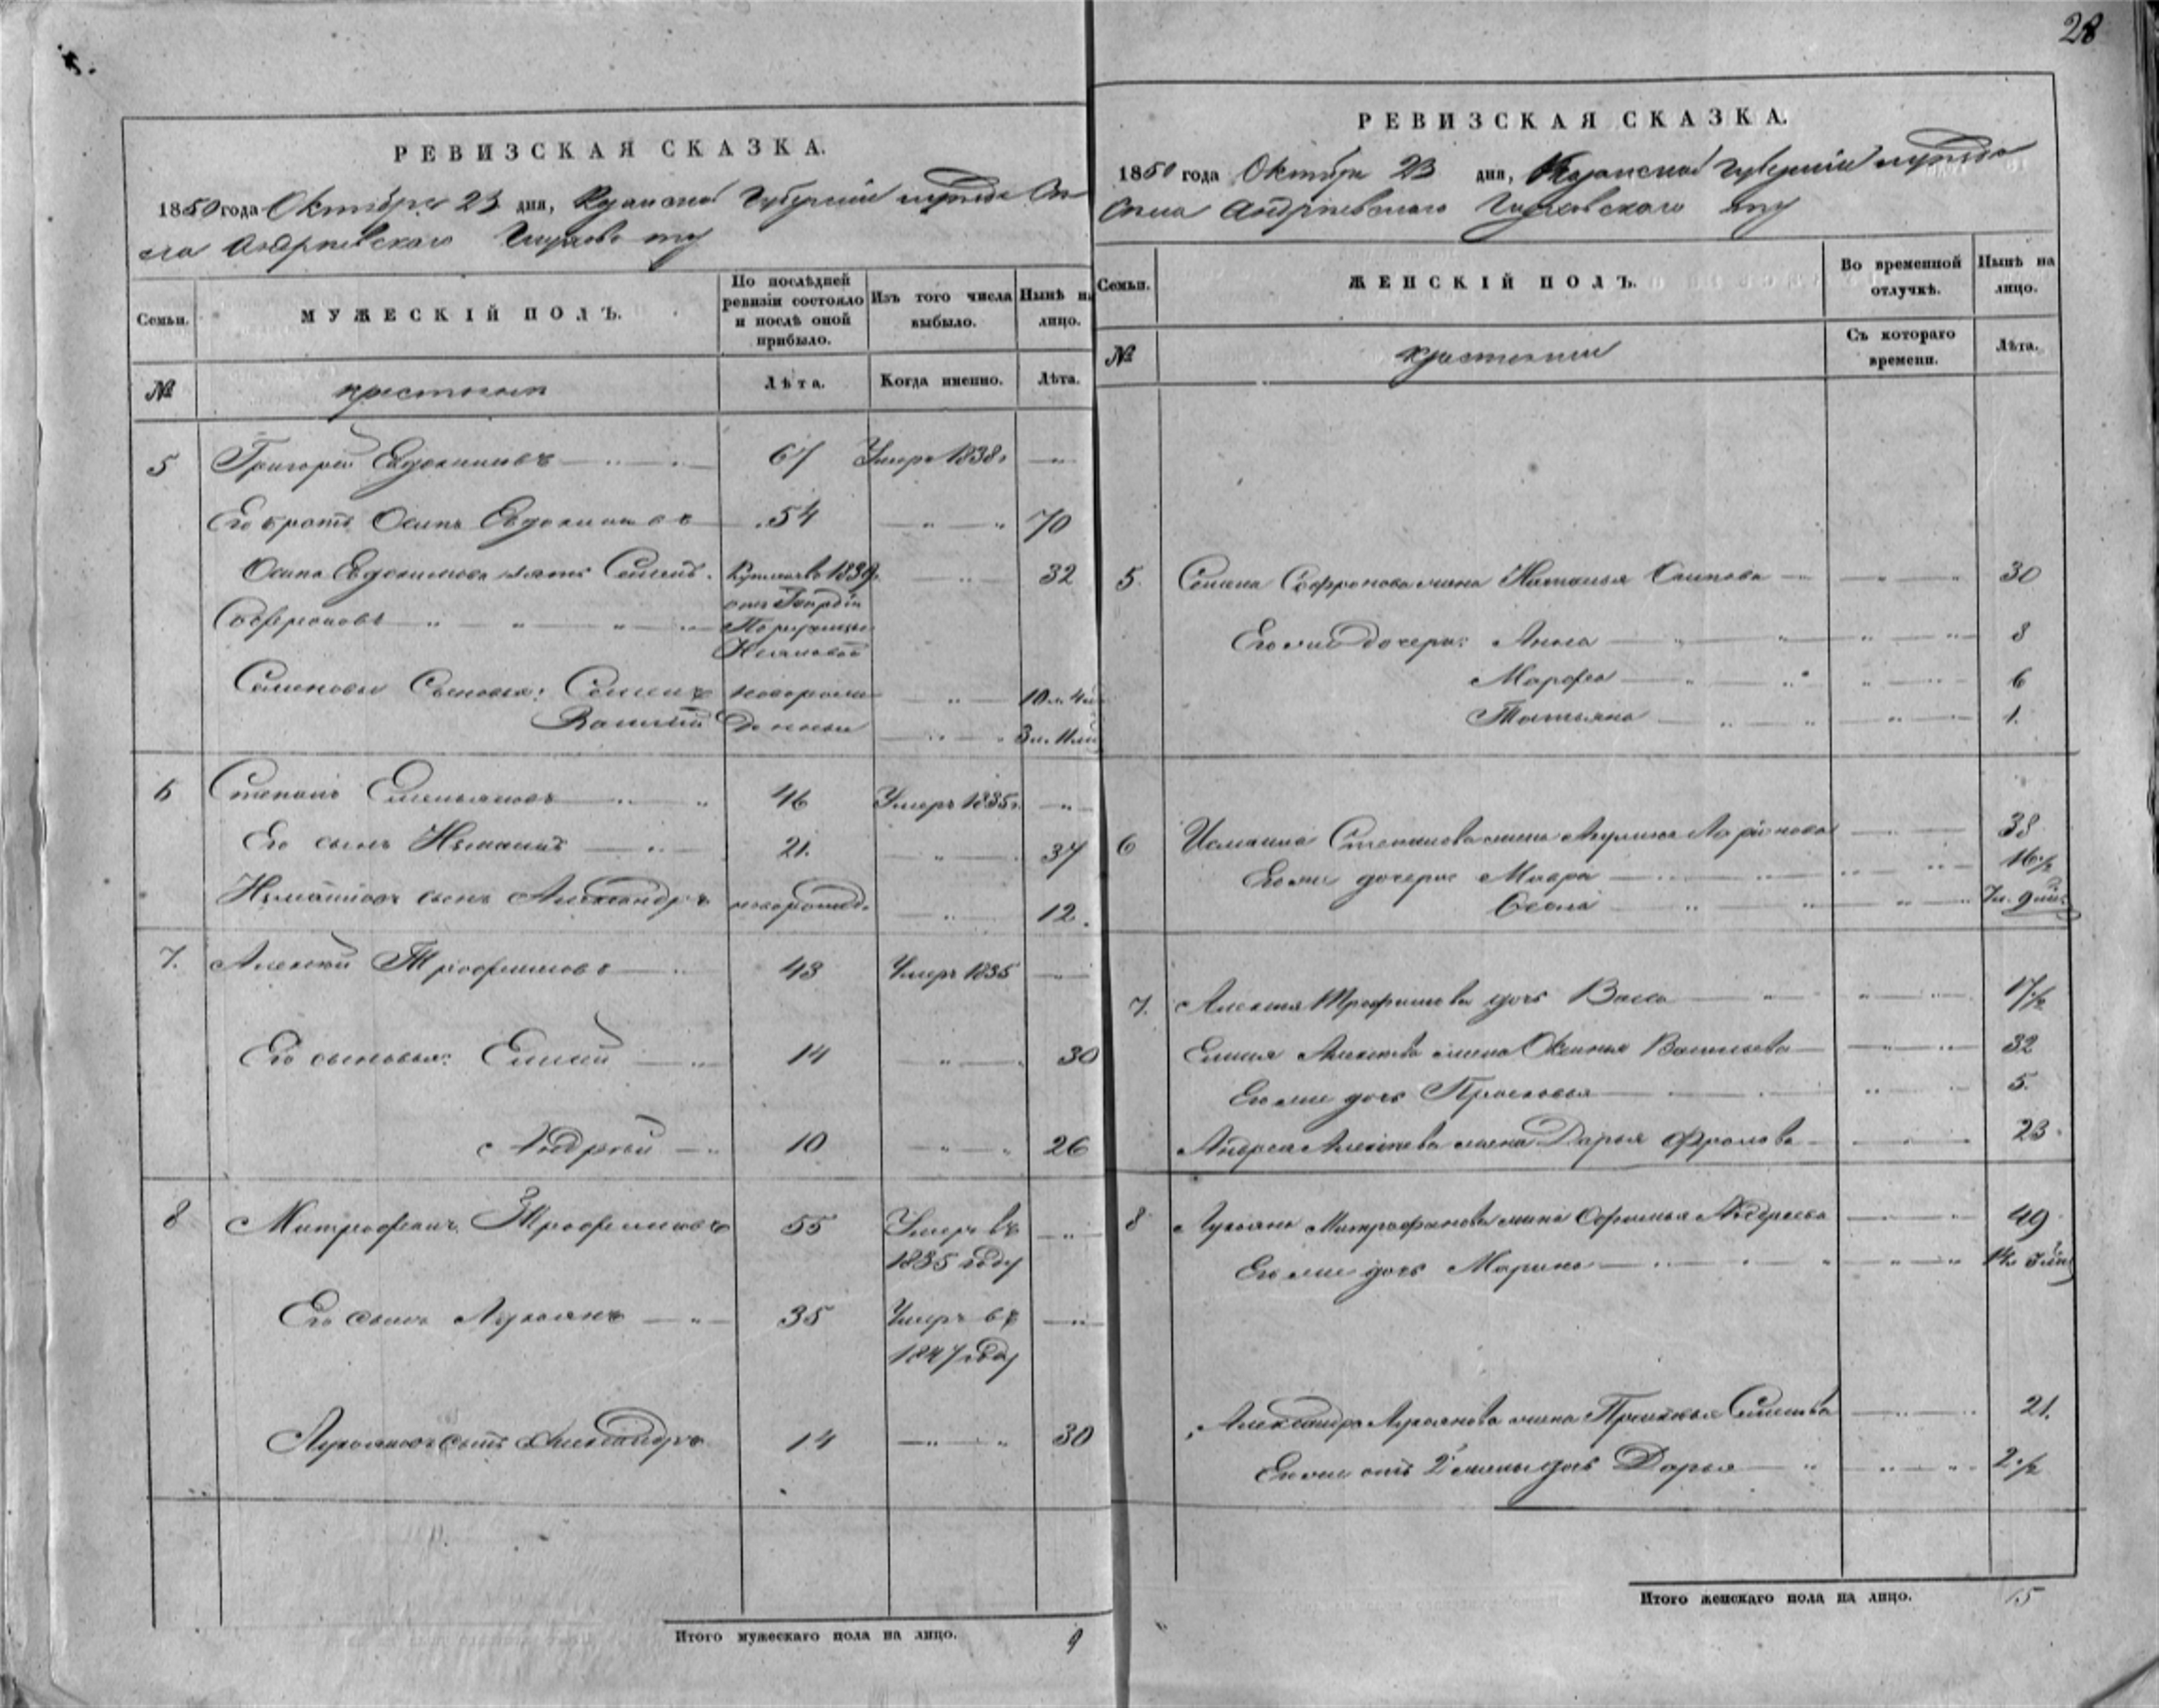 РЕВИЗСКАЯ СКАЗКА.
1850 года Октября 23 дня, Казанской Губернии
Андреевскаго
Семьи.
МУЖЕСКІЙ ПОЛЪ.
По послѣдней ревизіи состояло и послѣ оной прибыло.
Изъ того числа выбыло.
Нынѣ на лицо.
№
крестьянъ
Лѣта.
Когда именно.
Лѣта.
5 Григорей Евдокимовъ 67 Умеръ 1838 г
Его братъ Осипъ Евдокимовъ 54 70
Осипа Евдокимова зять Семенъ 32
Софроновъ
Семеновы Сыновья: Семенъ новорож 10 л. 4 м
Василий денные 3 л. 11 м
6 Степанъ Емельяновъ 46 Умеръ 1835 г.
Его сынъ Исмаилъ 21. 37
Исмаиловъ сынъ Александръ новорожд. 12.
7. Алексей Трофимовъ 43 Умеръ 1835
Его сыновья: Елисей 14 30
Андрей 10 26
8 Митрофанъ Трофимовъ 55 Умеръ въ
1835 году
Его сынъ Лукоянъ 35 Умеръ въ
1847 году
Лукояновъ сынъ Александръ 14 30
Итого мужескаго пола на лицо. 9
28
РЕВИЗСКАЯ СКАЗКА.
1850 года Октября 23 дня, Казанской Губернии
Андреевскаго
Семьи.
ЖЕНСКІЙ ПОЛЪ.
Во временной отлучкѣ.
Нынѣ на лицо.
№
Съ котораго времени.
Лѣта.
5. Семена Софронова жена Наталья Осипова 30
Его же дочери: Анна 8
Марфа 6
Татьяна 1.
6 Исмаила Степанова жена Акулина Ларионова 38
Его же дочери Мавра 16 1/2
7 л. 9 м
7. Алексея Трофимова дочь Васса 17 1/2
Елисея Алексеева жена Оксинья Васильева 32
Его же дочь Прасковья 5.
Андрея Алексеева жена Дарья Фролова 23
8 Лукояна Митрофанова жена Офимья Андреева 49
Его же дочь Марина
Александра Лукоянова жена Прасковья 21.
Его же отъ 2 жены дочь Дарья 2 1/2
Итого женскаго пола на лицо. 15